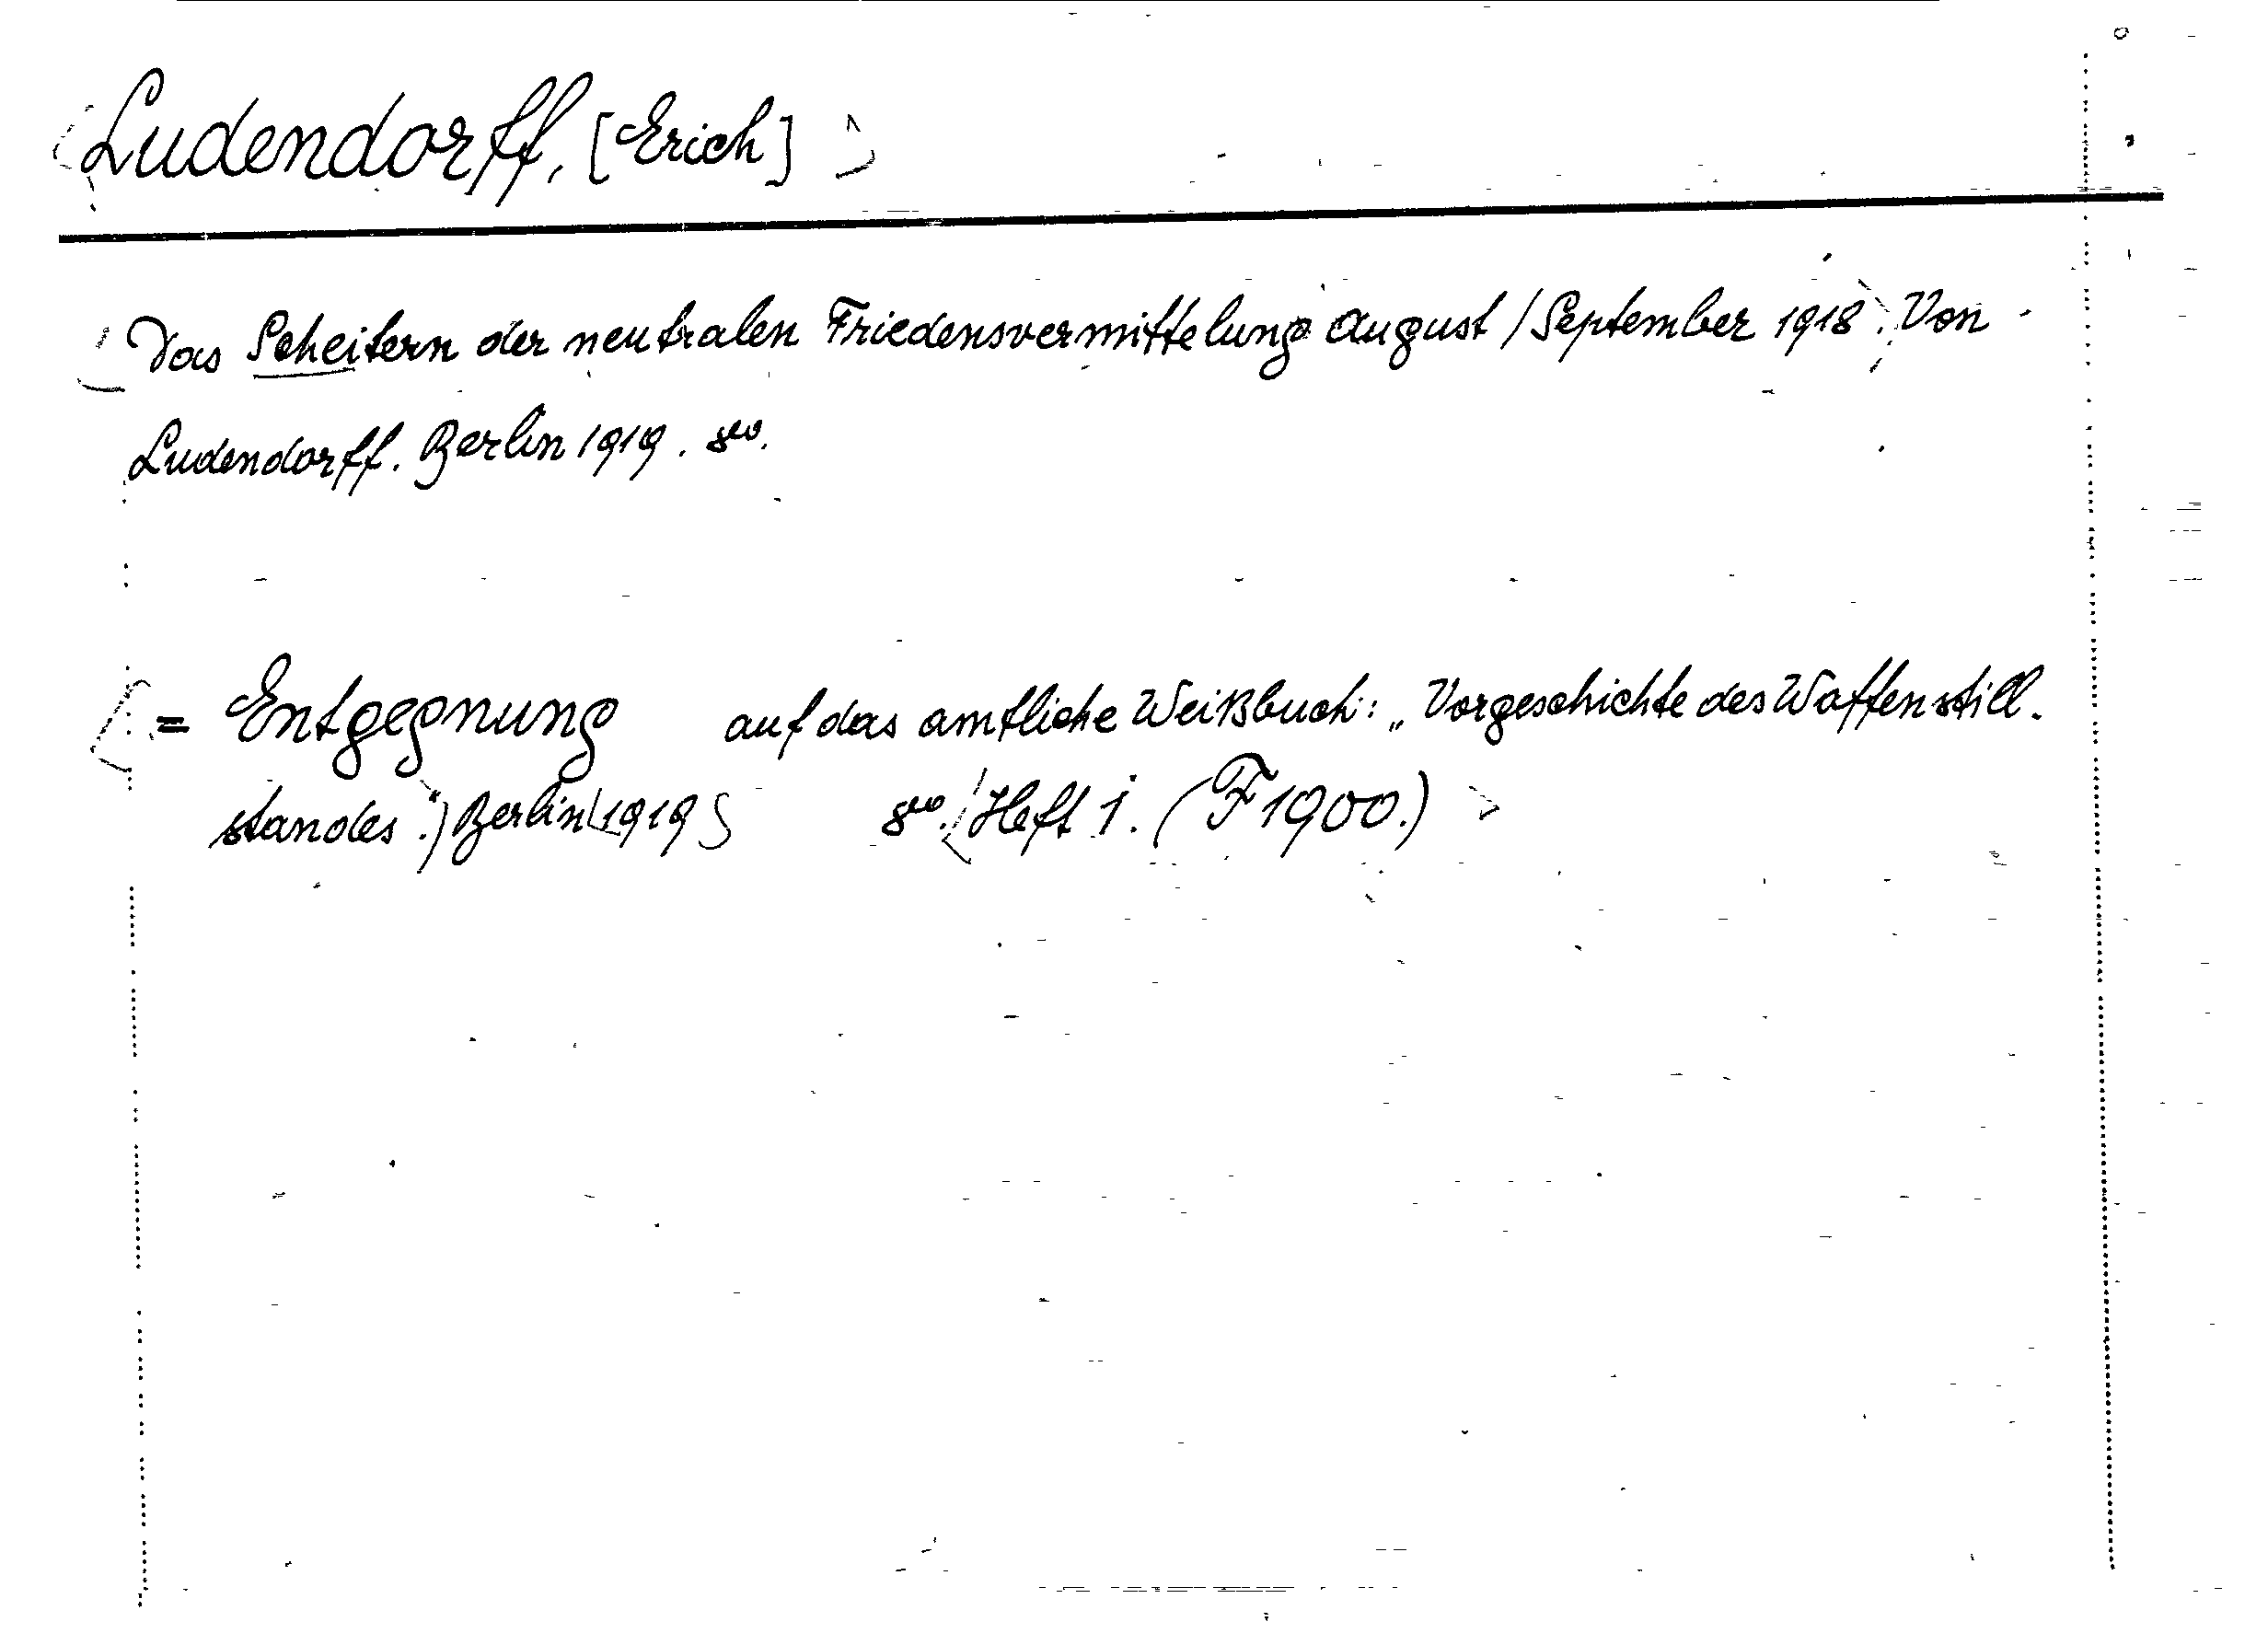 Ludendorff, [Erich]
Das Scheitern der neutralen Friedensvermittelung August/September 1918. Von
Ludendorff. Berlin 1919. 8vo.
= Entgegnung auf das amtliche Weißbuch: „Vorgeschichte des Waffenstill-
standes." Berlin 1919 8vo. Heft 1. (F 1900.)